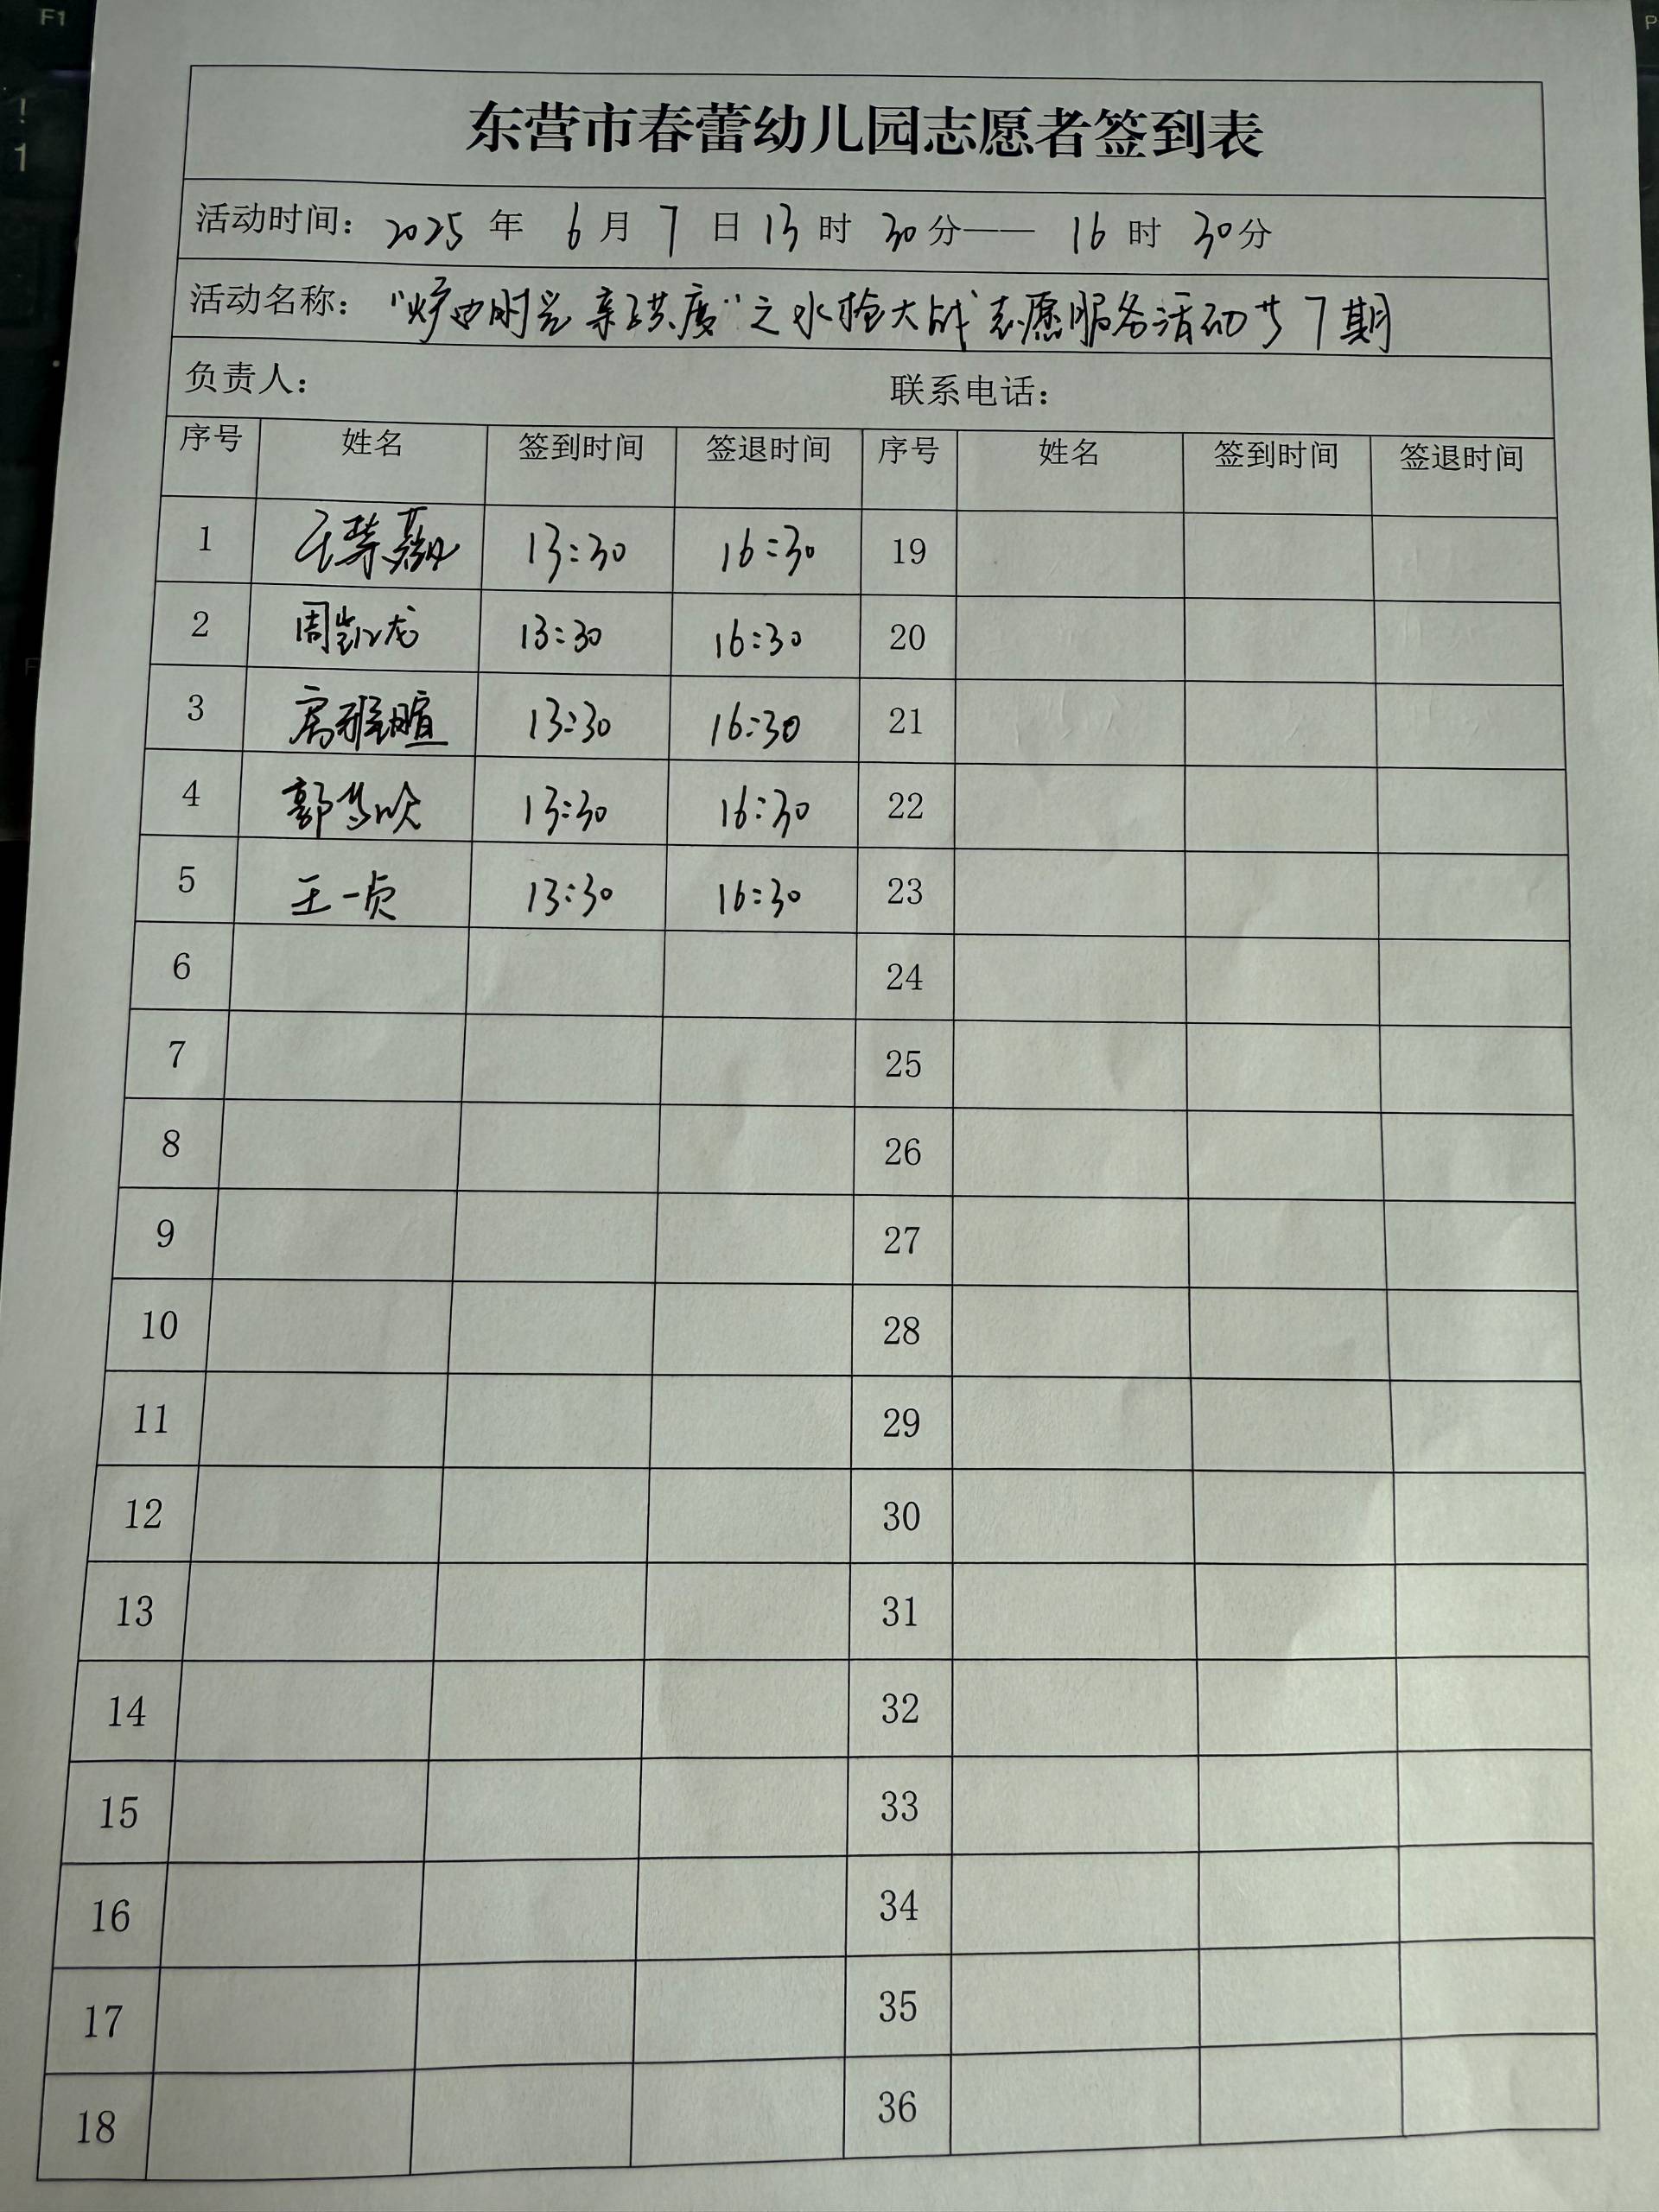 东营市春蕾幼儿园志愿者签到表
活动时间: 2025 年 6 月 7 日 13 时 30 分—— 16 时 30 分
活动名称: 时光 亲子共度"之水枪大战 志愿服务活动 7 期
负责人: 联系电话:
序号 姓名 签到时间 签退时间 序号 姓名 签到时间 签退时间
1 13:30 16:30 19
2 周凯龙 13:30 16:30 20
3 13:30 16:30 21
4 郭梦欣 13:30 16:30 22
5 王一贞 13:30 16:30 23
6 24
7 25
8 26
9 27
10 28
11 29
12 30
13 31
14 32
15 33
16 34
17 35
18 36
F1
!
1
P